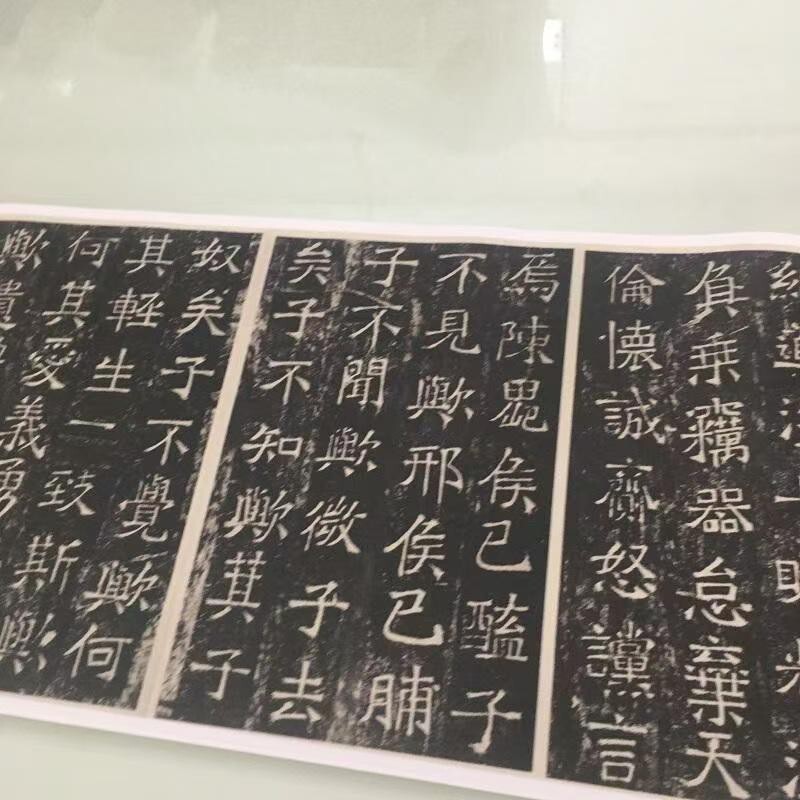 一明
負乗竊器怠棄天
倫懷誠齌怒讜言
焉陳鬼侯已醢子
不見歟邢侯已脯
子不聞歟微子去
矣子不知歟萁子
奴矣子不覺歟何
其輕生一致斯歟
何其愛義勇
歟遺